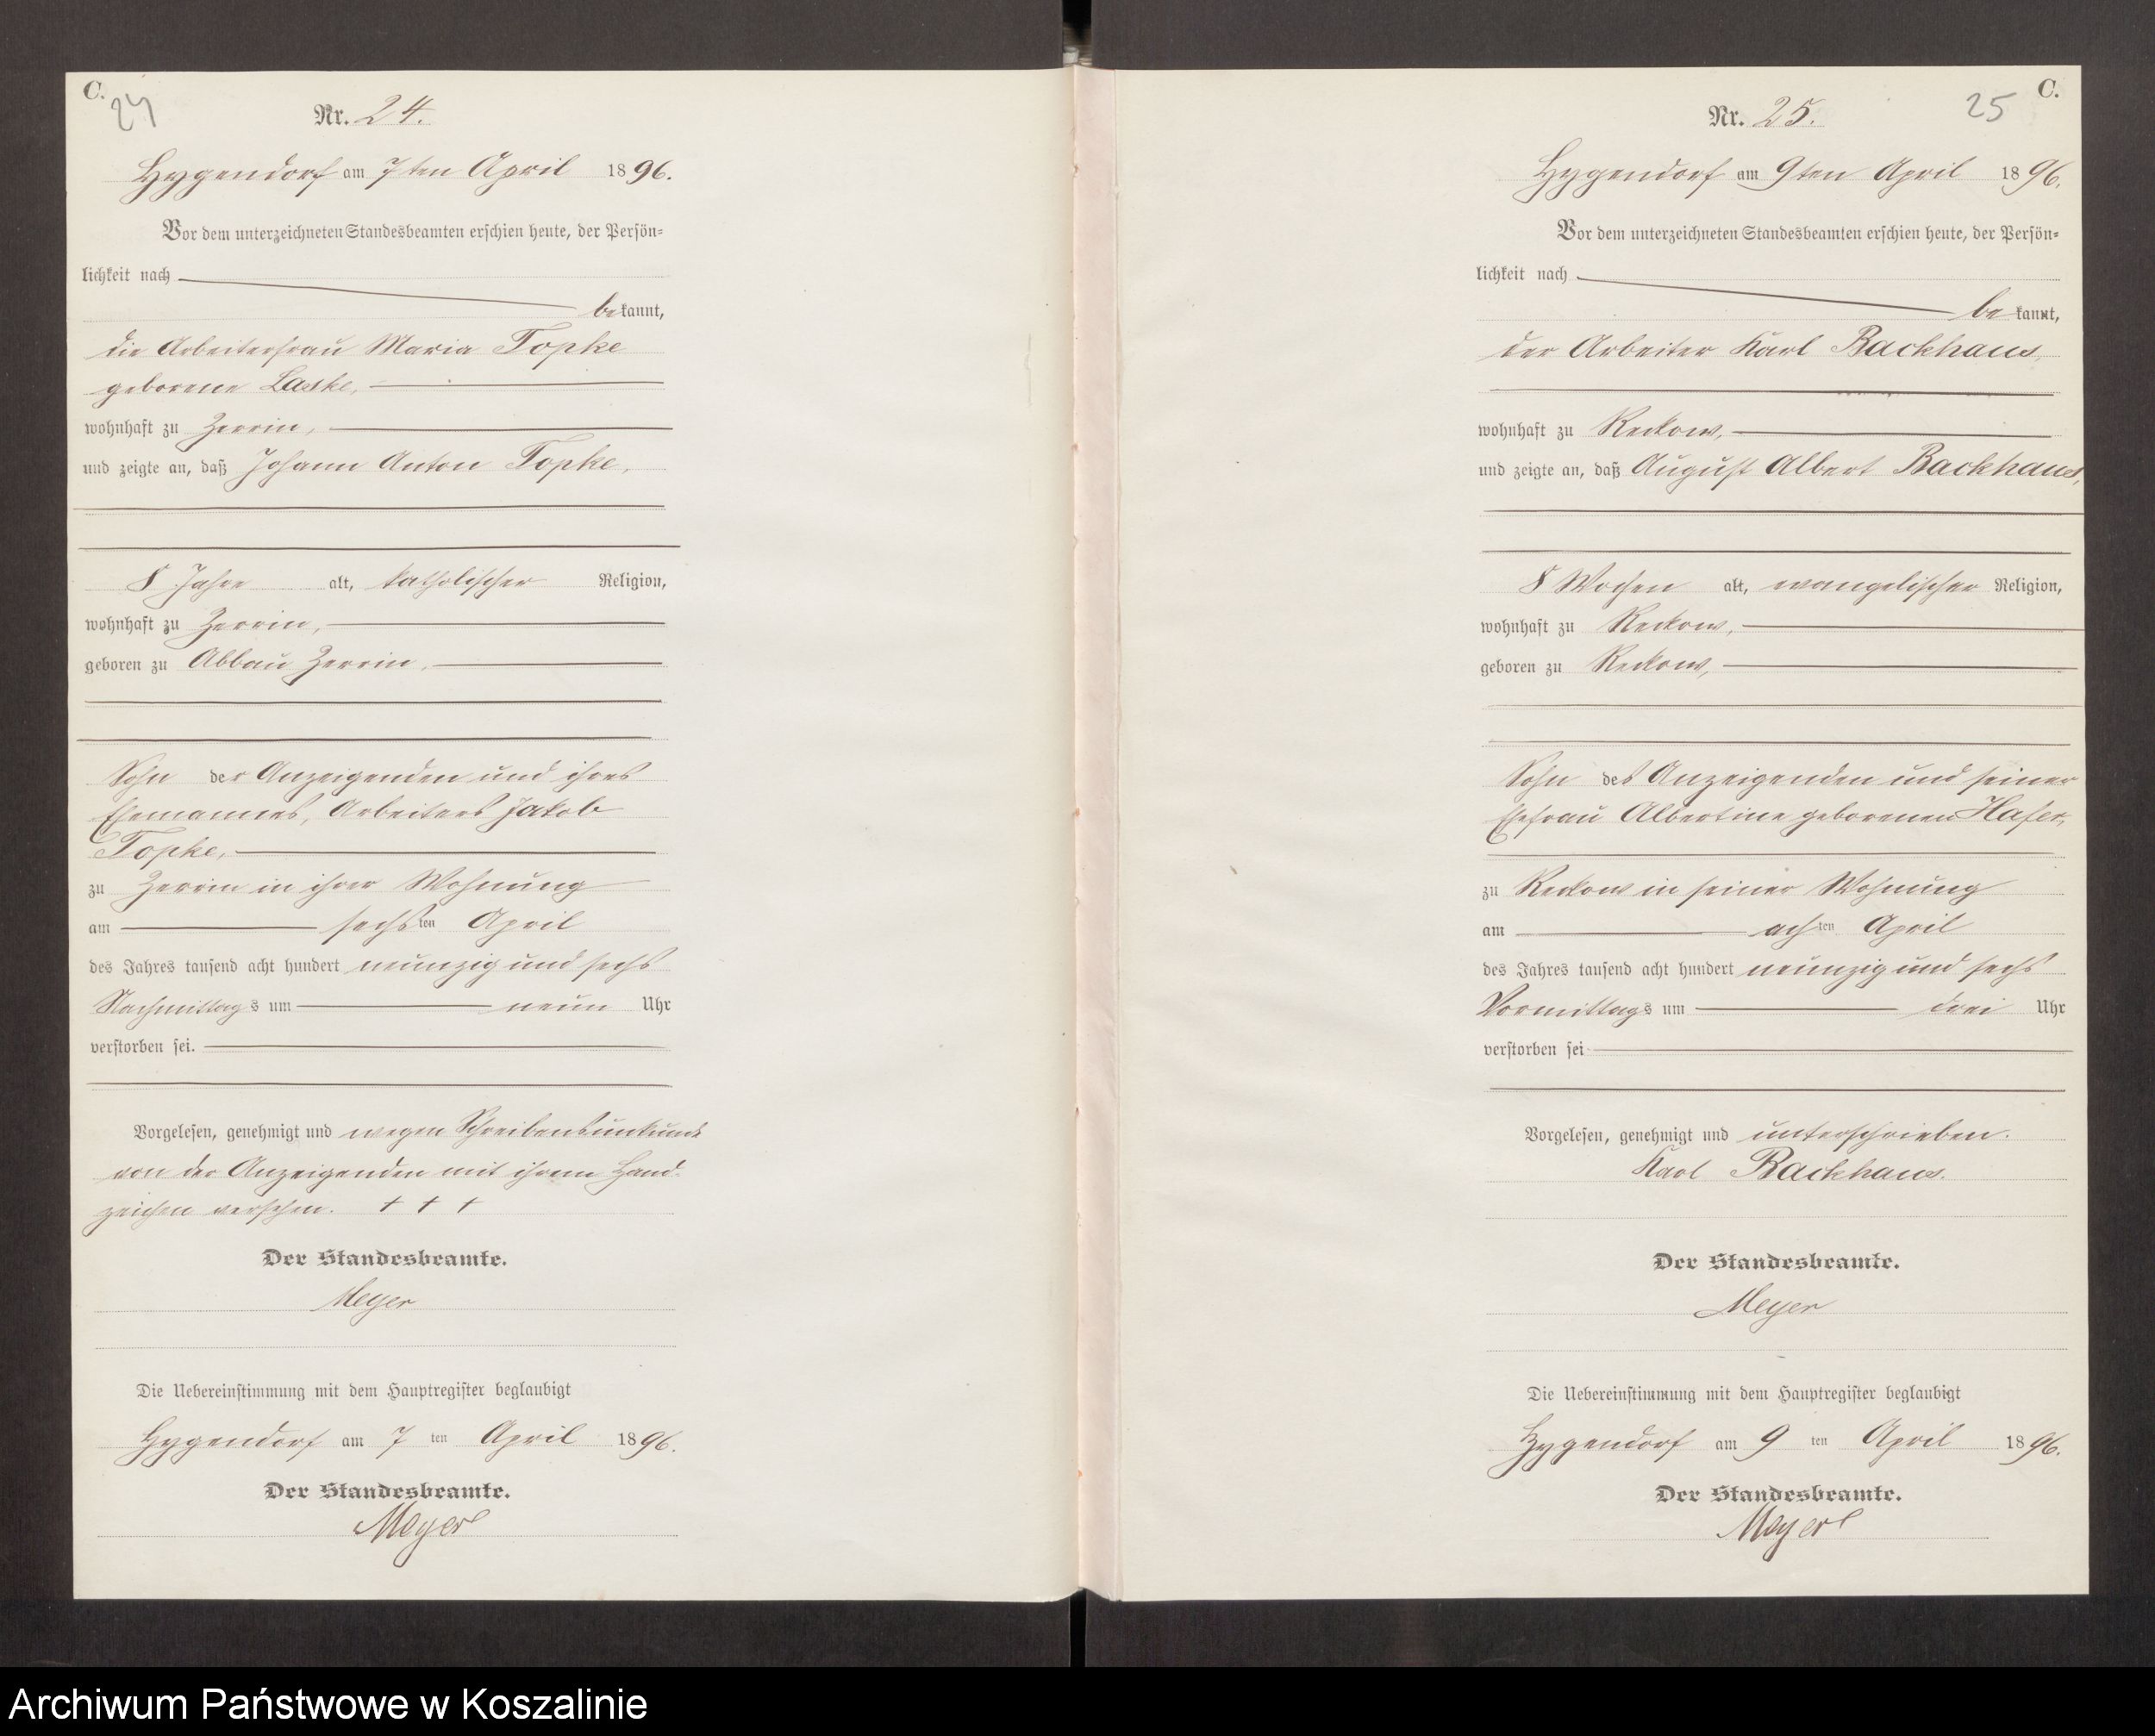 C.
24
Nr. 24.
Hygendorf am 7ten April 1896.
Vor dem unterzeichneten Standesbeamten erschien heute, der Persön-
lichkeit nach
bekannt,
die Arbeiterfrau Maria Topke
geborene Laske,
wohnhaft zu Zerrin,
und zeigte an, daß Johann Anton Topke,
8 Jahre alt, katholischer Religion,
wohnhaft zu Zerrin,
geboren zu Abbau Zerrin,
Sohn der Anzeigenden und ihres
Ehemannes, Arbeiters Jakob
Topke,
zu Zerrin in ihrer Wohnung
am sechsten April
des Jahres tausend acht hundert neunzig und sechs
Nachmittags um neun Uhr
verstorben sei.
Vorgelesen, genehmigt und wegen Schreibensunkunde
von der Anzeigenden mit ihrem Hand-
zeichen versehen. + + +
Der Standesbeamte.
Meyer
Die Uebereinstimmung mit dem Hauptregister beglaubigt
Hygendorf am 7ten April 1896.
Der Standesbeamte.
Meyer
C.
25
Nr. 25.
Hygendorf am 9ten April 1896.
Vor dem unterzeichneten Standesbeamten erschien heute, der Persön-
lichkeit nach
bekannt,
der Arbeiter Karl Backhaus,
wohnhaft zu Reckow,
und zeigte an, daß August Albert Backhaus,
8 Wochen alt, evangelischer Religion,
wohnhaft zu Reckow,
geboren zu Reckow,
Sohn des Anzeigenden und seiner
Ehefrau Albertine geborenen Hafer,
zu Reckow in seiner Wohnung
am achten April
des Jahres tausend acht hundert neunzig und sechs
Vormittags um drei Uhr
verstorben sei
Vorgelesen, genehmigt und unterschrieben.
Karl Backhaus.
Der Standesbeamte.
Meyer
Die Uebereinstimmung mit dem Hauptregister beglaubigt
Hygendorf am 9ten April 1896.
Der Standesbeamte.
Meyer
Archiwum Państwowe w Koszalinie